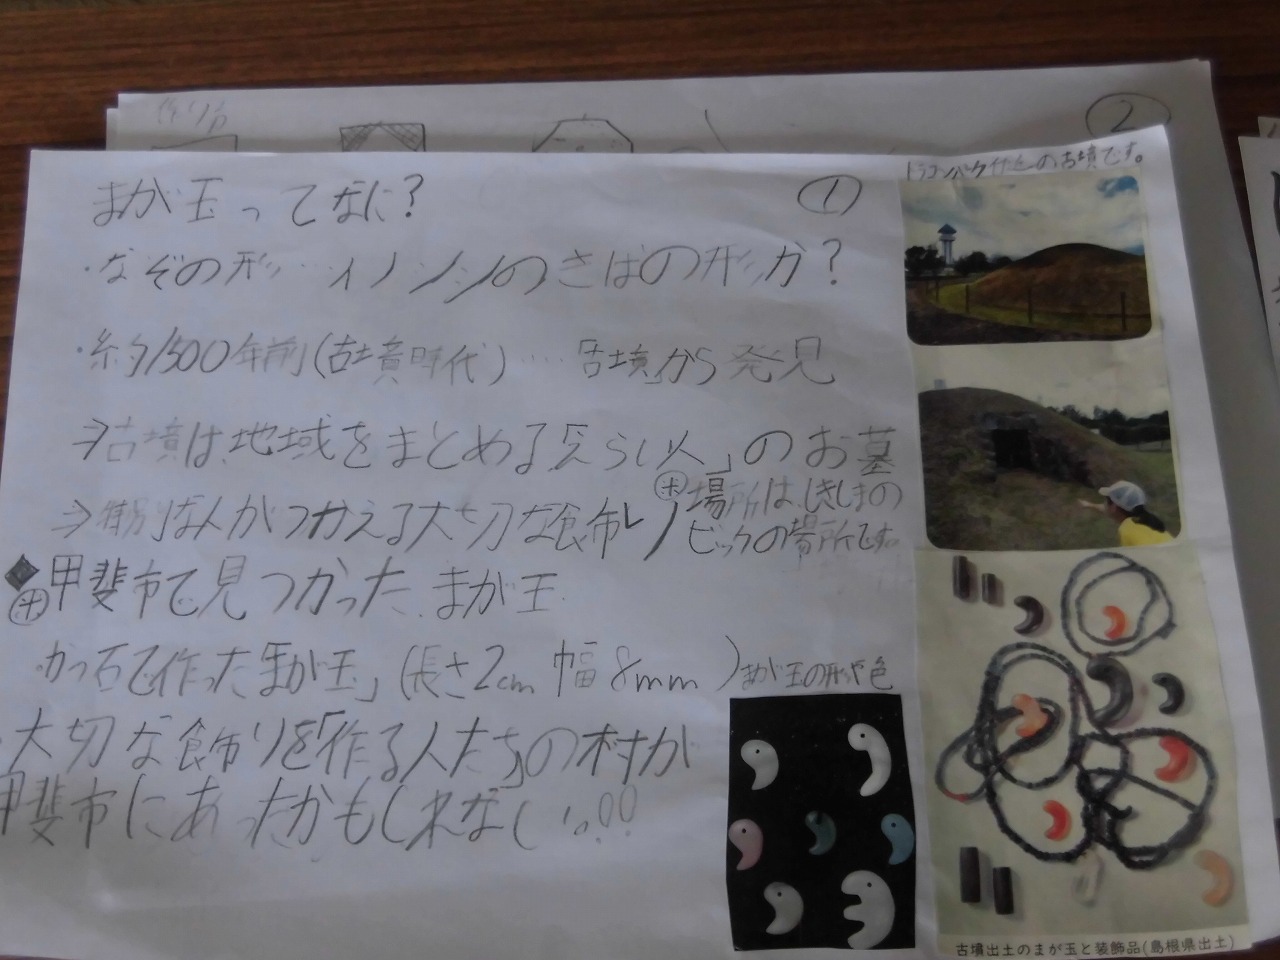 作り方
②
まが玉ってなに?
①
・なぞの形…イノシシのきばの形か?
・約1500年前(古墳時代)…古墳から発見
⇒古墳は、地域をまとめる「えらい人」のお墓
⇒特別な人がつかえる大切な飾り
場所は、しきしまの
ビックの場所です。
◆甲斐市で見つかった、まが玉
かっ石で作った「まが玉」(長さ2cm 幅8mm)
まが玉の形や色
・大切な飾りを「作る人たち」の村が
甲斐市にあったかもしれない。!!
の古墳です。
古墳出土のまが玉と装飾品(島根県出土)